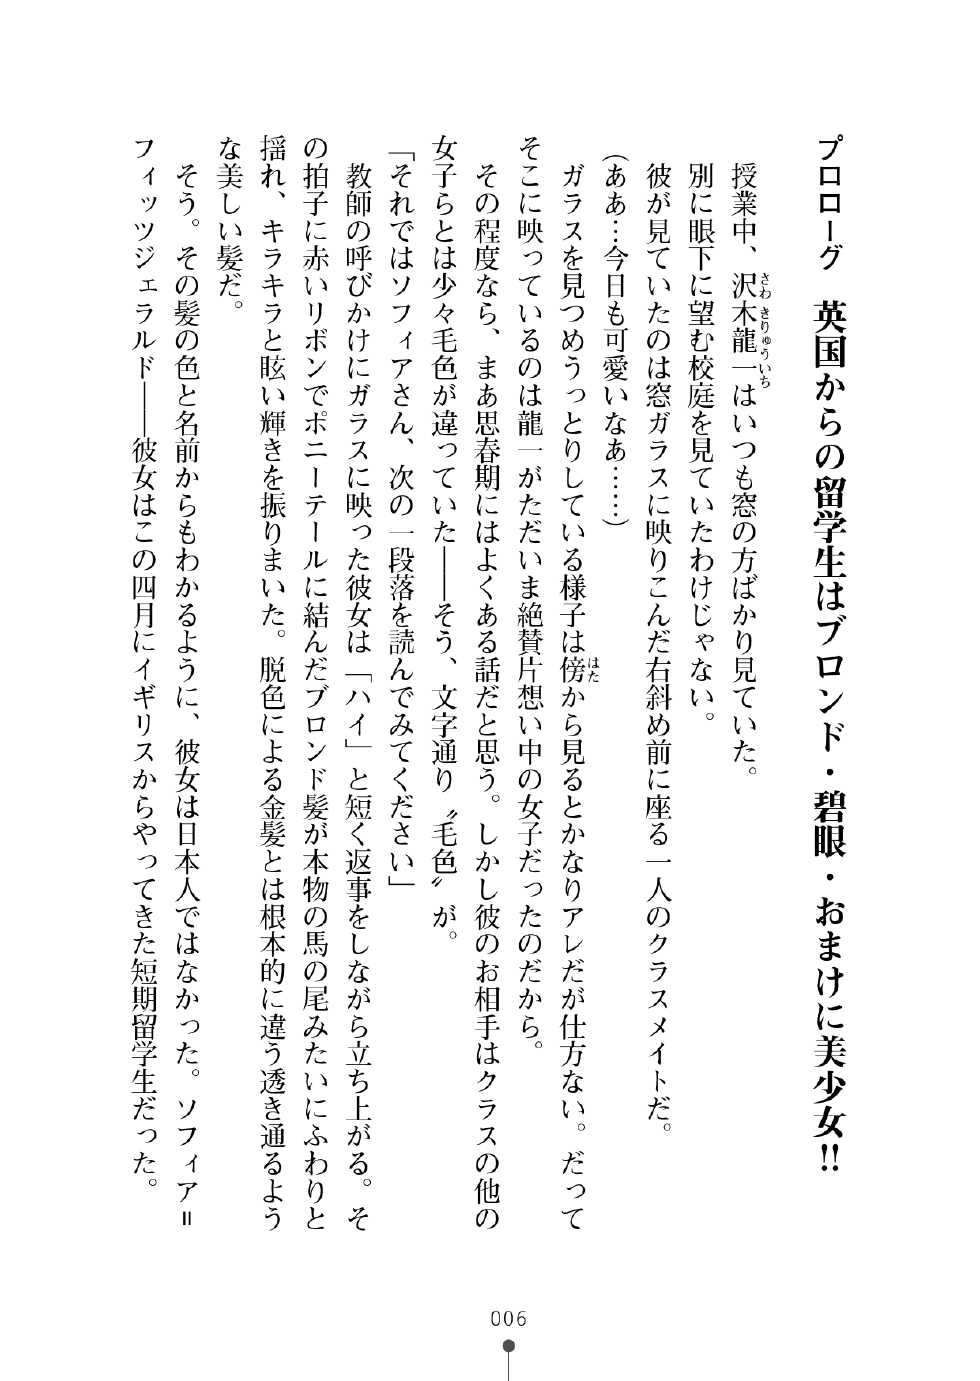 プロローグ　英国からの留学生はブロンド・碧眼・おまけに美少女!!
授業中、沢木龍一はいつも窓の方ばかり見ていた。
さわ きりゅういち
別に眼下に望む校庭を見ていたわけじゃない。
彼が見ていたのは窓ガラスに映りこんだ右斜め前に座る一人のクラスメイトだ。
（ああ…今日も可愛いなあ……）
ガラスを見つめうっとりしている様子は傍から見るとかなりアレだが仕方ない。だって
はた
そこに映っているのは龍一がただいま絶賛片想い中の女子だったのだから。
その程度なら、まあ思春期にはよくある話だと思う。しかし彼のお相手はクラスの他の
女子らとは少々毛色が違っていた――そう、文字通り〝毛色〟が。
「それではソフィアさん、次の一段落を読んでみてください」
教師の呼びかけにガラスに映った彼女は「ハイ」と短く返事をしながら立ち上がる。そ
の拍子に赤いリボンでポニーテールに結んだブロンド髪が本物の馬の尾みたいにふわりと
揺れ、キラキラと眩い輝きを振りまいた。脱色による金髪とは根本的に違う透き通るよう
な美しい髪だ。
そう。その髪の色と名前からもわかるように、彼女は日本人ではなかった。ソフィア＝
フィッツジェラルド――彼女はこの四月にイギリスからやってきた短期留学生だった。
006